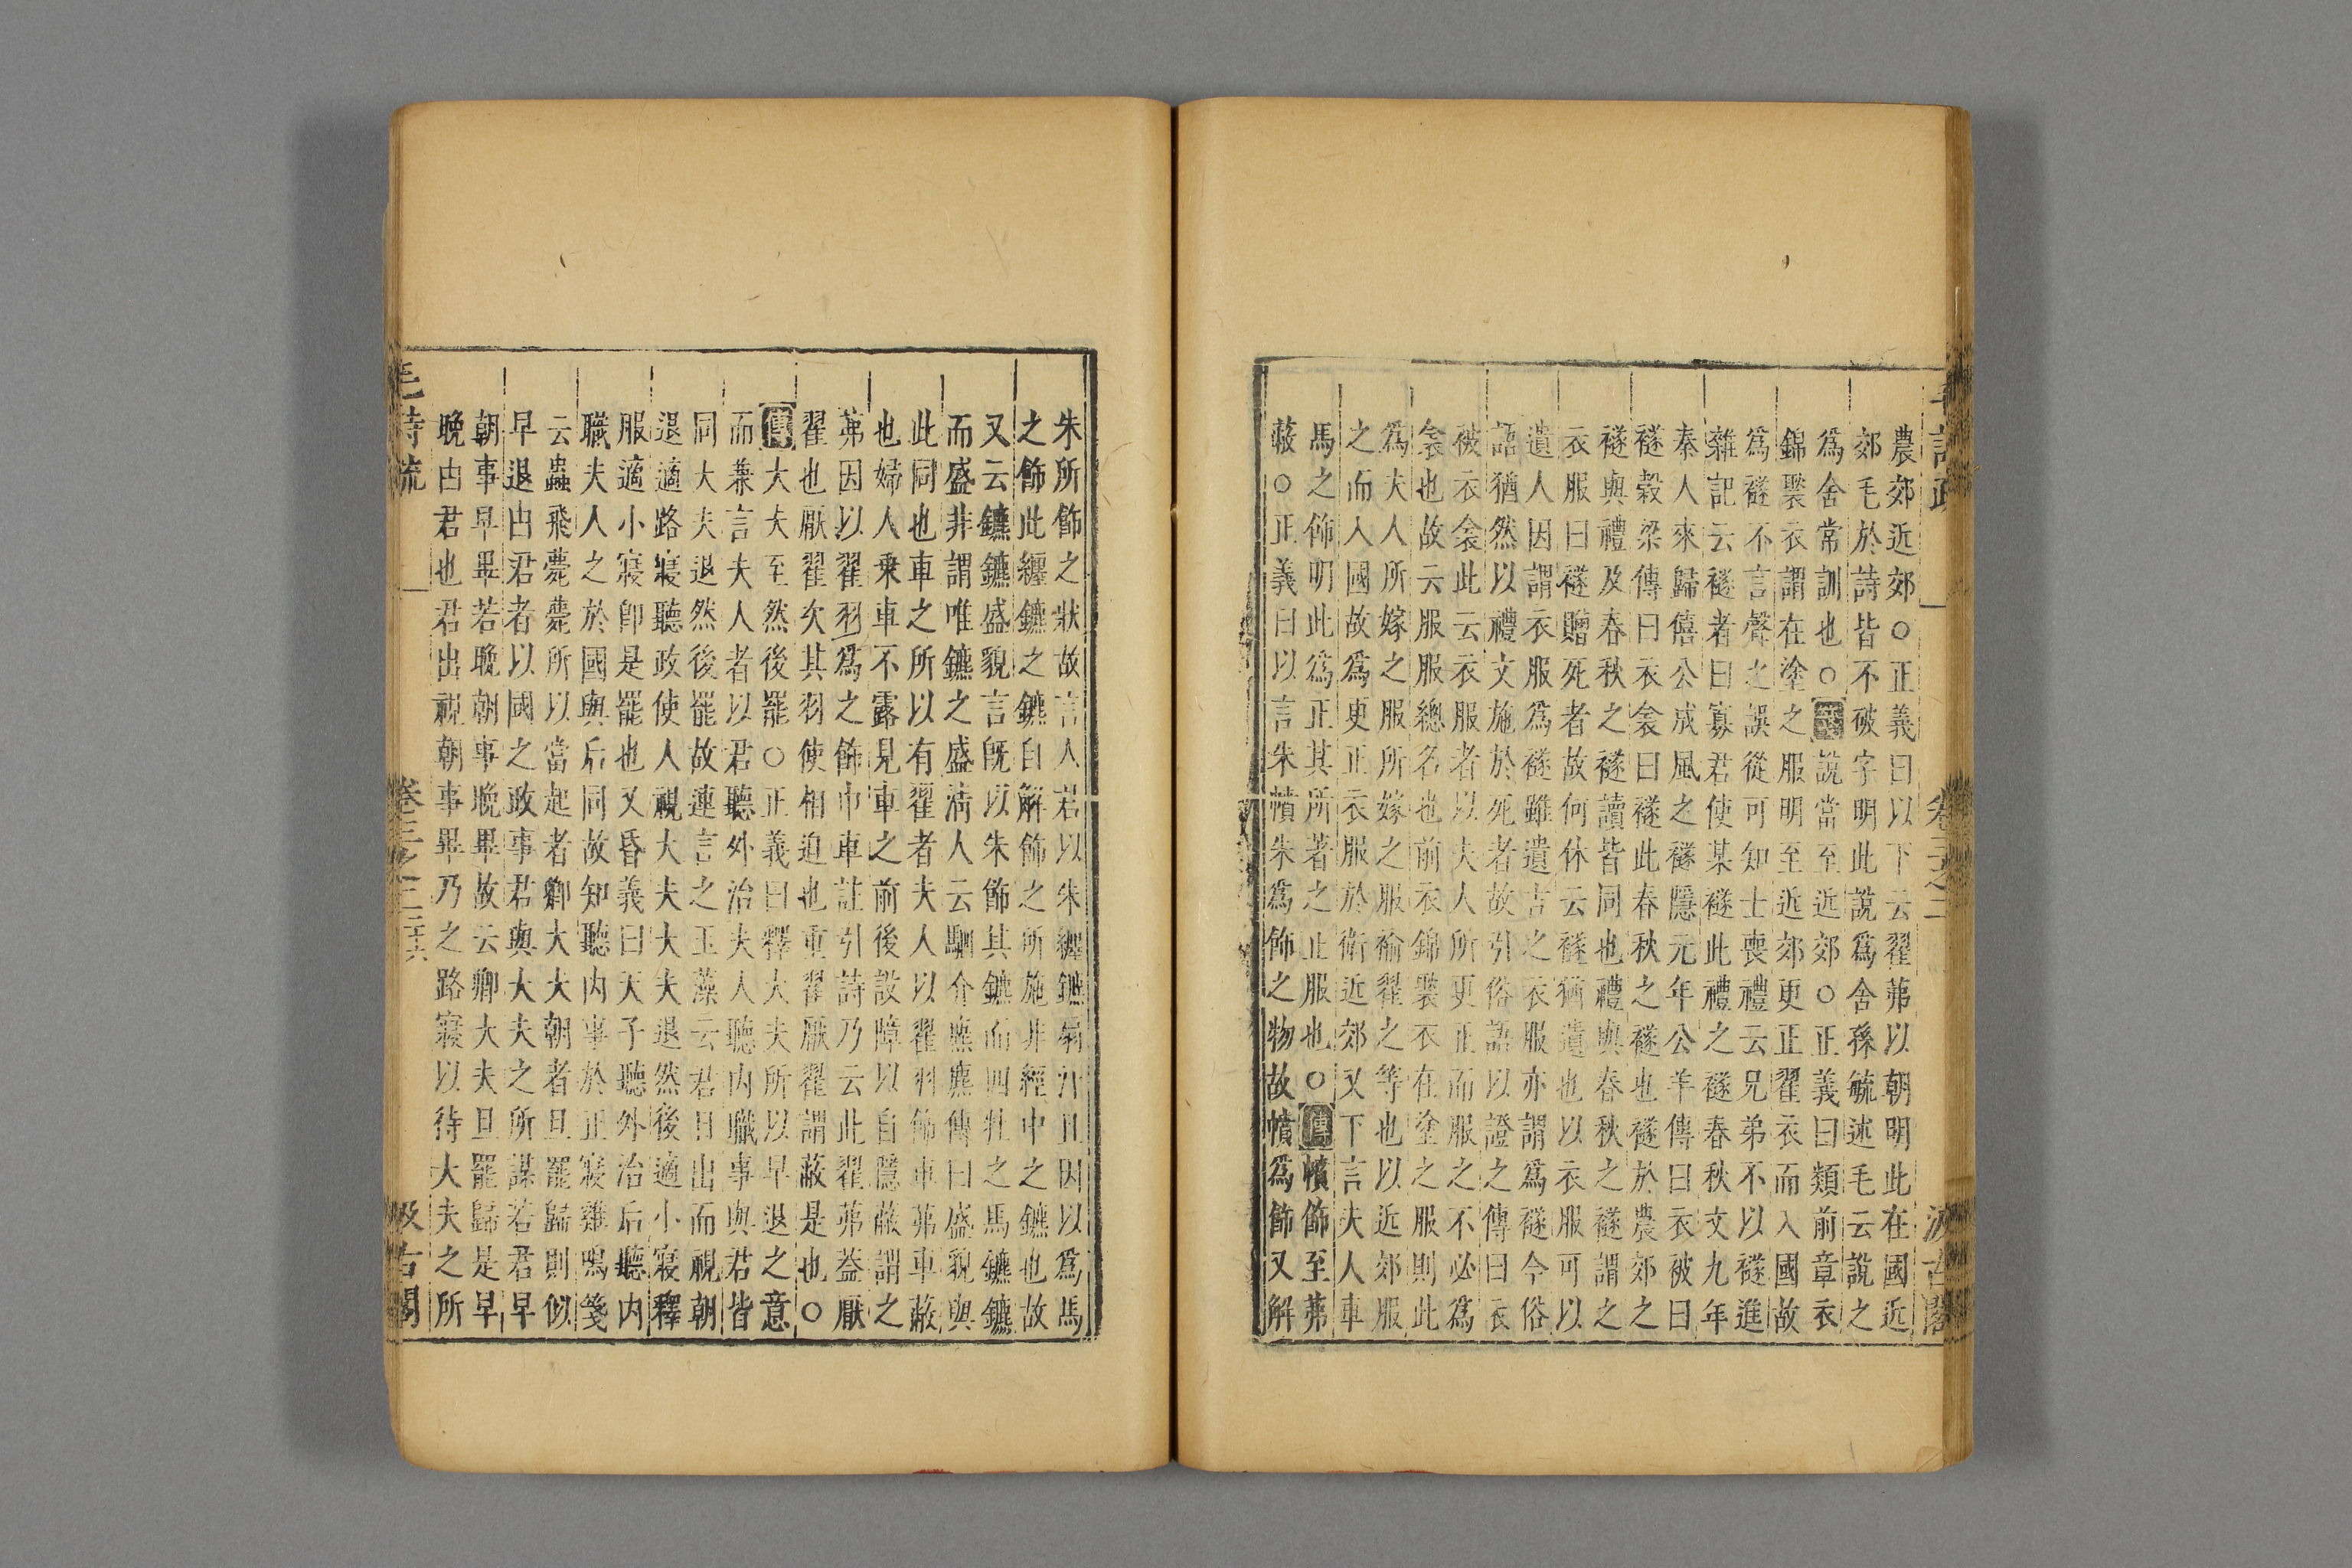 農郊近郊○正義曰以下云翟茀以朝明此在國近
郊毛於詩皆不破字明此說爲舍孫毓述毛云說之
爲舍常訓也○箋說當至近郊○正義曰類前章衣
錦褧衣謂在塗之服明至近郊更正翟衣而入國故
爲襚不言聲之誤從可知士喪禮云兄弟不以襚進
雜記云襚者曰寡君使某襚此禮之襚春秋文九年
秦人來歸僖公成風之襚隱元年公羊傳曰衣被曰
襚穀梁傳曰衣衾曰襚此春秋之襚也襚於農郊之
襚與禮及春秋之襚讀皆同也禮與春秋之襚謂之
衣服曰襚贈死者故何休云襚猶遺也以衣服可以
遺人因謂衣服爲襚雖遺吉之衣服亦謂爲襚今俗
語猶然以禮文施於死者故引俗語以證之傳曰衣
被衣衾此云衣服者以大人所更正而服之不必爲
衾也故云服服總名也前衣錦褧衣在塗之服則此
爲夫人所嫁之服所嫁之服褕翟之等也以近郊服
之而入國故爲更正衣服於衛近郊又下言夫人車
馬之飾明此爲正其所著之正服也○傳幩飾至茀
蔽○正義曰以言朱幩朱爲飾之物故幩爲飾又解
朱所飾之狀故言人君以朱纏鑣扇汗且因以爲馬
之飾此纏鑣之鑣自解飾之所施非經中之鑣也故
又云鑣鑣盛貌言旣以朱飾其鑣而四牡之馬鑣鑣
而盛非謂唯鑣之盛淸人云駟介麃麃傳曰盛貌與
此同也車之所以有翟者夫人以翟羽飾車茀車蔽
也婦人乘車不露見車之前後設障以自隱蔽謂之
茀因以翟羽爲之飾巾車註引詩乃云此翟茀蓋厭
翟也厭翟次其羽使相迫也重翟厭翟謂蔽是也○
傳大夫至然後罷○正義曰釋大夫所以早退之意
而兼言夫人者以君聽外治夫人聽內職事與君皆
同大夫退然後罷故連言之玉藻云君日出而視朝
退適路寢聽政使人視大夫大夫退然後適小寢釋
服適小寢卽是罷也又昏義曰天子聽外治后聽內
職夫人之於國與后同故知聽內事於正寢雞鳴箋
云蟲飛薨薨所以當起者卿大夫朝者旦罷歸則似
早退由君者以國之政事君與大夫之所謀若君早
朝事早畢若晚朝事晚畢故云卿大夫旦罷歸是早
晚由君也君出視朝事畢乃之路寢以待大夫之所
毛詩疏 卷三之二 二十六 汲古閣